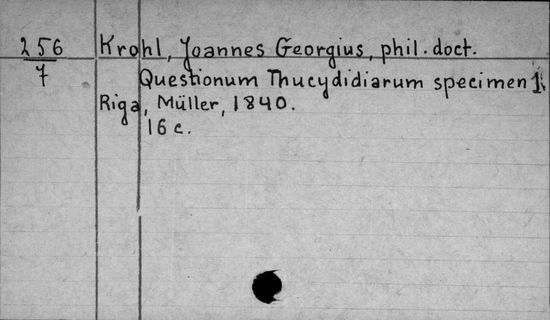 256
7
Krohl, Joannes Georgius, phil. doct.
Questionum Thucydidiarum specimen 1.
Riga, Müller, 1840.
16 c.